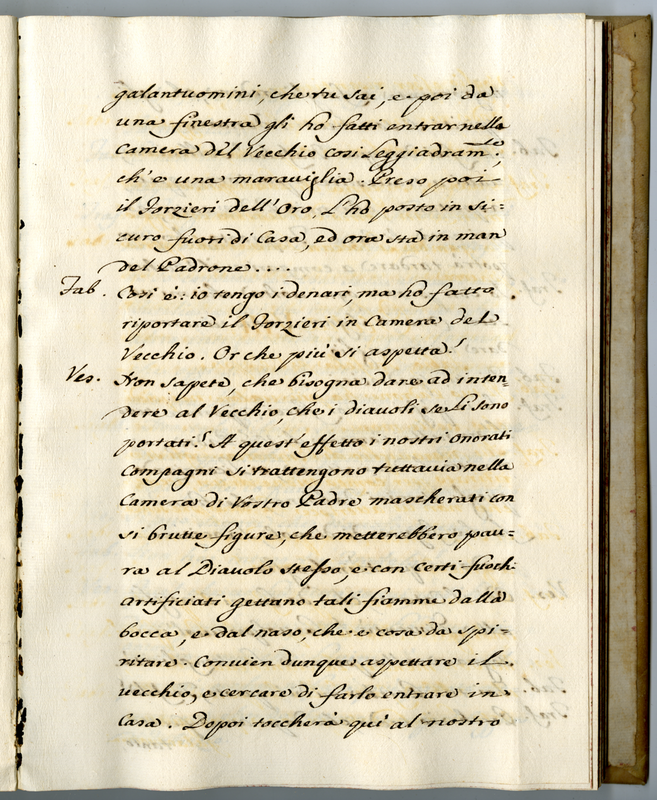 galantuomini, che tu sai, e poi da
una finestra gli ho fatti entrar nella
Camera del Vecchio così leggiadram.te
ch'è una maraviglia. Preso poi
il Forzieri dell'Oro, l'hò posto in si=
curo fuori di Casa, ed ora sta in man
del Padrone....
Fab. Così è: io tengo i denari, ma ho fatto
riportare il Forzieri in Camera del
Vecchio. Or che più si aspetta?
Ves. Non sapete, che bisogna dare ad inten=
dere al Vecchio, che i diavoli se li sono
portati? A quest'effetto i nostri onorati
Compagni si trattengono tuttavia nella
Camera di Vostro Padre mascherati con
sì brutte figure, che metterebbero pau=
ra al Diavolo stesso, e con certi fuochi
artificiati gettano tali fiamme dalla
bocca, e dal naso, che è cosa da spi=
ritare. Convien dunque aspettare il
vecchio, e cercare di farlo entrare in
Casa. Dopoi toccherà quì al nostro